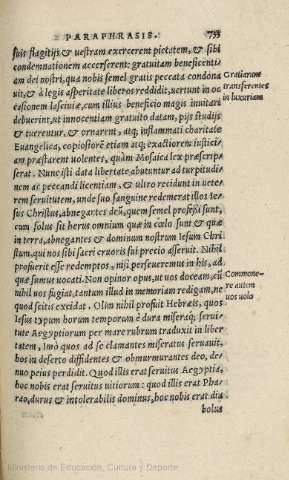 PARAPHRASIS. 733
suis flagitijs & uestram exercerent pietatem, & sibi
condemnationem accerserent: gratuitam beneficentiam
dei nostri, qua nobis semel gratis peccata condona
uit, & à legis asperitate liberos reddidit, uertunt in oc
casionem lasciuiæ, cum illius beneficio magis inuitari
debuerint, ut innocentiam gratuito datam, pijs studijs
& tuerentur, & ornarent, atq; inflammati charitate
Euangelica, copiosiorē etiam atq; exactiorem iusticiam
præstarent uolentes, quàm Mosaica lex præscripserat.
Nunc isti data libertate, abutuntur ad turpitudinem
ac peccandi licentiam, & ultro recidunt in ueterem
seruitutem, unde suo sanguine redemerat illos Iesus
Christus, abnegantes deū, quem semel professi sunt,
cum solus sit herus omnium quæ in cœlo sunt & quæ
in terra, abnegantes & dominum nostrum Iesum Christum,
qui nos sibi sacri cruoris sui precio asseruit. Nihil
profuerit esse redemptos, nisi perseueremus in his, ad
quæ sumus uocati. Non opinor opus, ut uos doceam, cū
nihil uos fugiat, tantum illud in memoriam redigam, ne
quod scitis excidat. Olim nihil profuit Hebræis, quos
Iesus typum horum temporum è dura miseraq; seruitute
Aegyptiorum per mare rubrum traduxit in libertatem,
imò quos ad se clamantes miseratus seruauit,
hos in deserto diffidentes & obmurmurantes deo, denuo
peius perdidit. Quod illis erat seruitus Aegyptia,
hoc nobis erat seruitus uitiorum: quod illis erat Pharao,
durus & intolerabilis dominus, hoc nobis erat dia
bolus
Gratiarum
transferentes
in luxuriam
Commone-
re autem
uos uolo
Ministerio de Educación, Cultura y Deporte